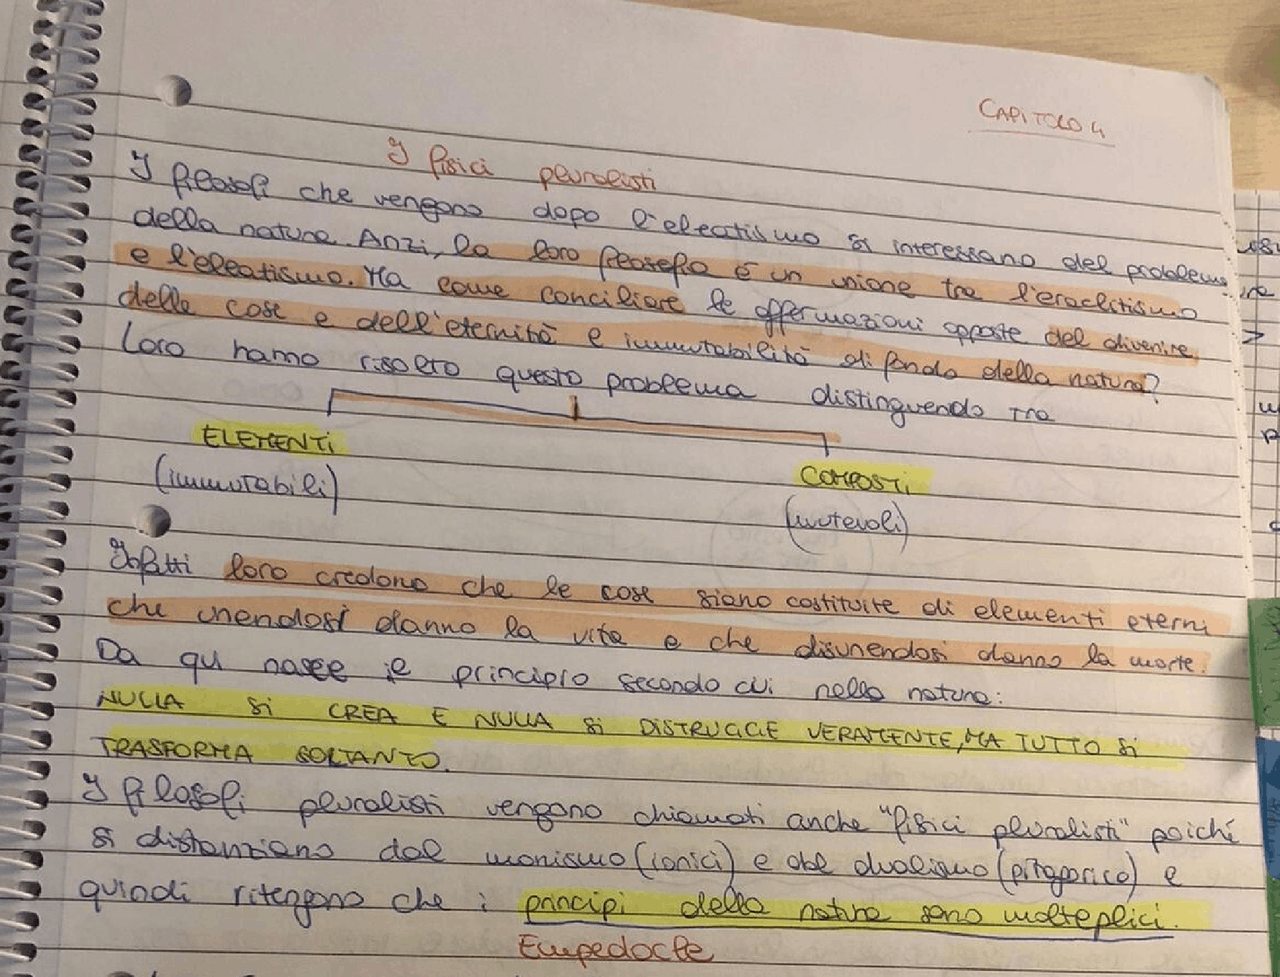 CAPITOLO 4
I fisici pluralisti
I filosofi che vengono dopo l'eleatismo si interessano del problema
della natura. Anzi, la loro filosofia è un unione tra l'eraclitismo
e l'eleatismo. Ma come conciliare le affermazioni opposte del divenire
delle cose e dell'eternità e immutabilità di fondo della natura?
Loro hanno risolto questo problema distinguendo tra
ELEMENTI
COMPOSTI
(immutabili)
(mutevoli)
Infatti loro credono che le cose siano costituite di elementi eterni
che unendosi danno la vita e che disunendosi danno la morte.
Da qui nasce il principio secondo cui nella natura:
NULLA SI CREA E NULLA SI DISTRUGGE VERAMENTE, MA TUTTO SI
TRASFORMA SOLTANTO.
I filosofi pluralisti vengono chiamati anche "fisici pluralisti" poiché
si distanziano dal monismo (ionici) e dal dualismo (pitagorico) e
quindi ritengono che i principi della natura sono molteplici.
Empedocle